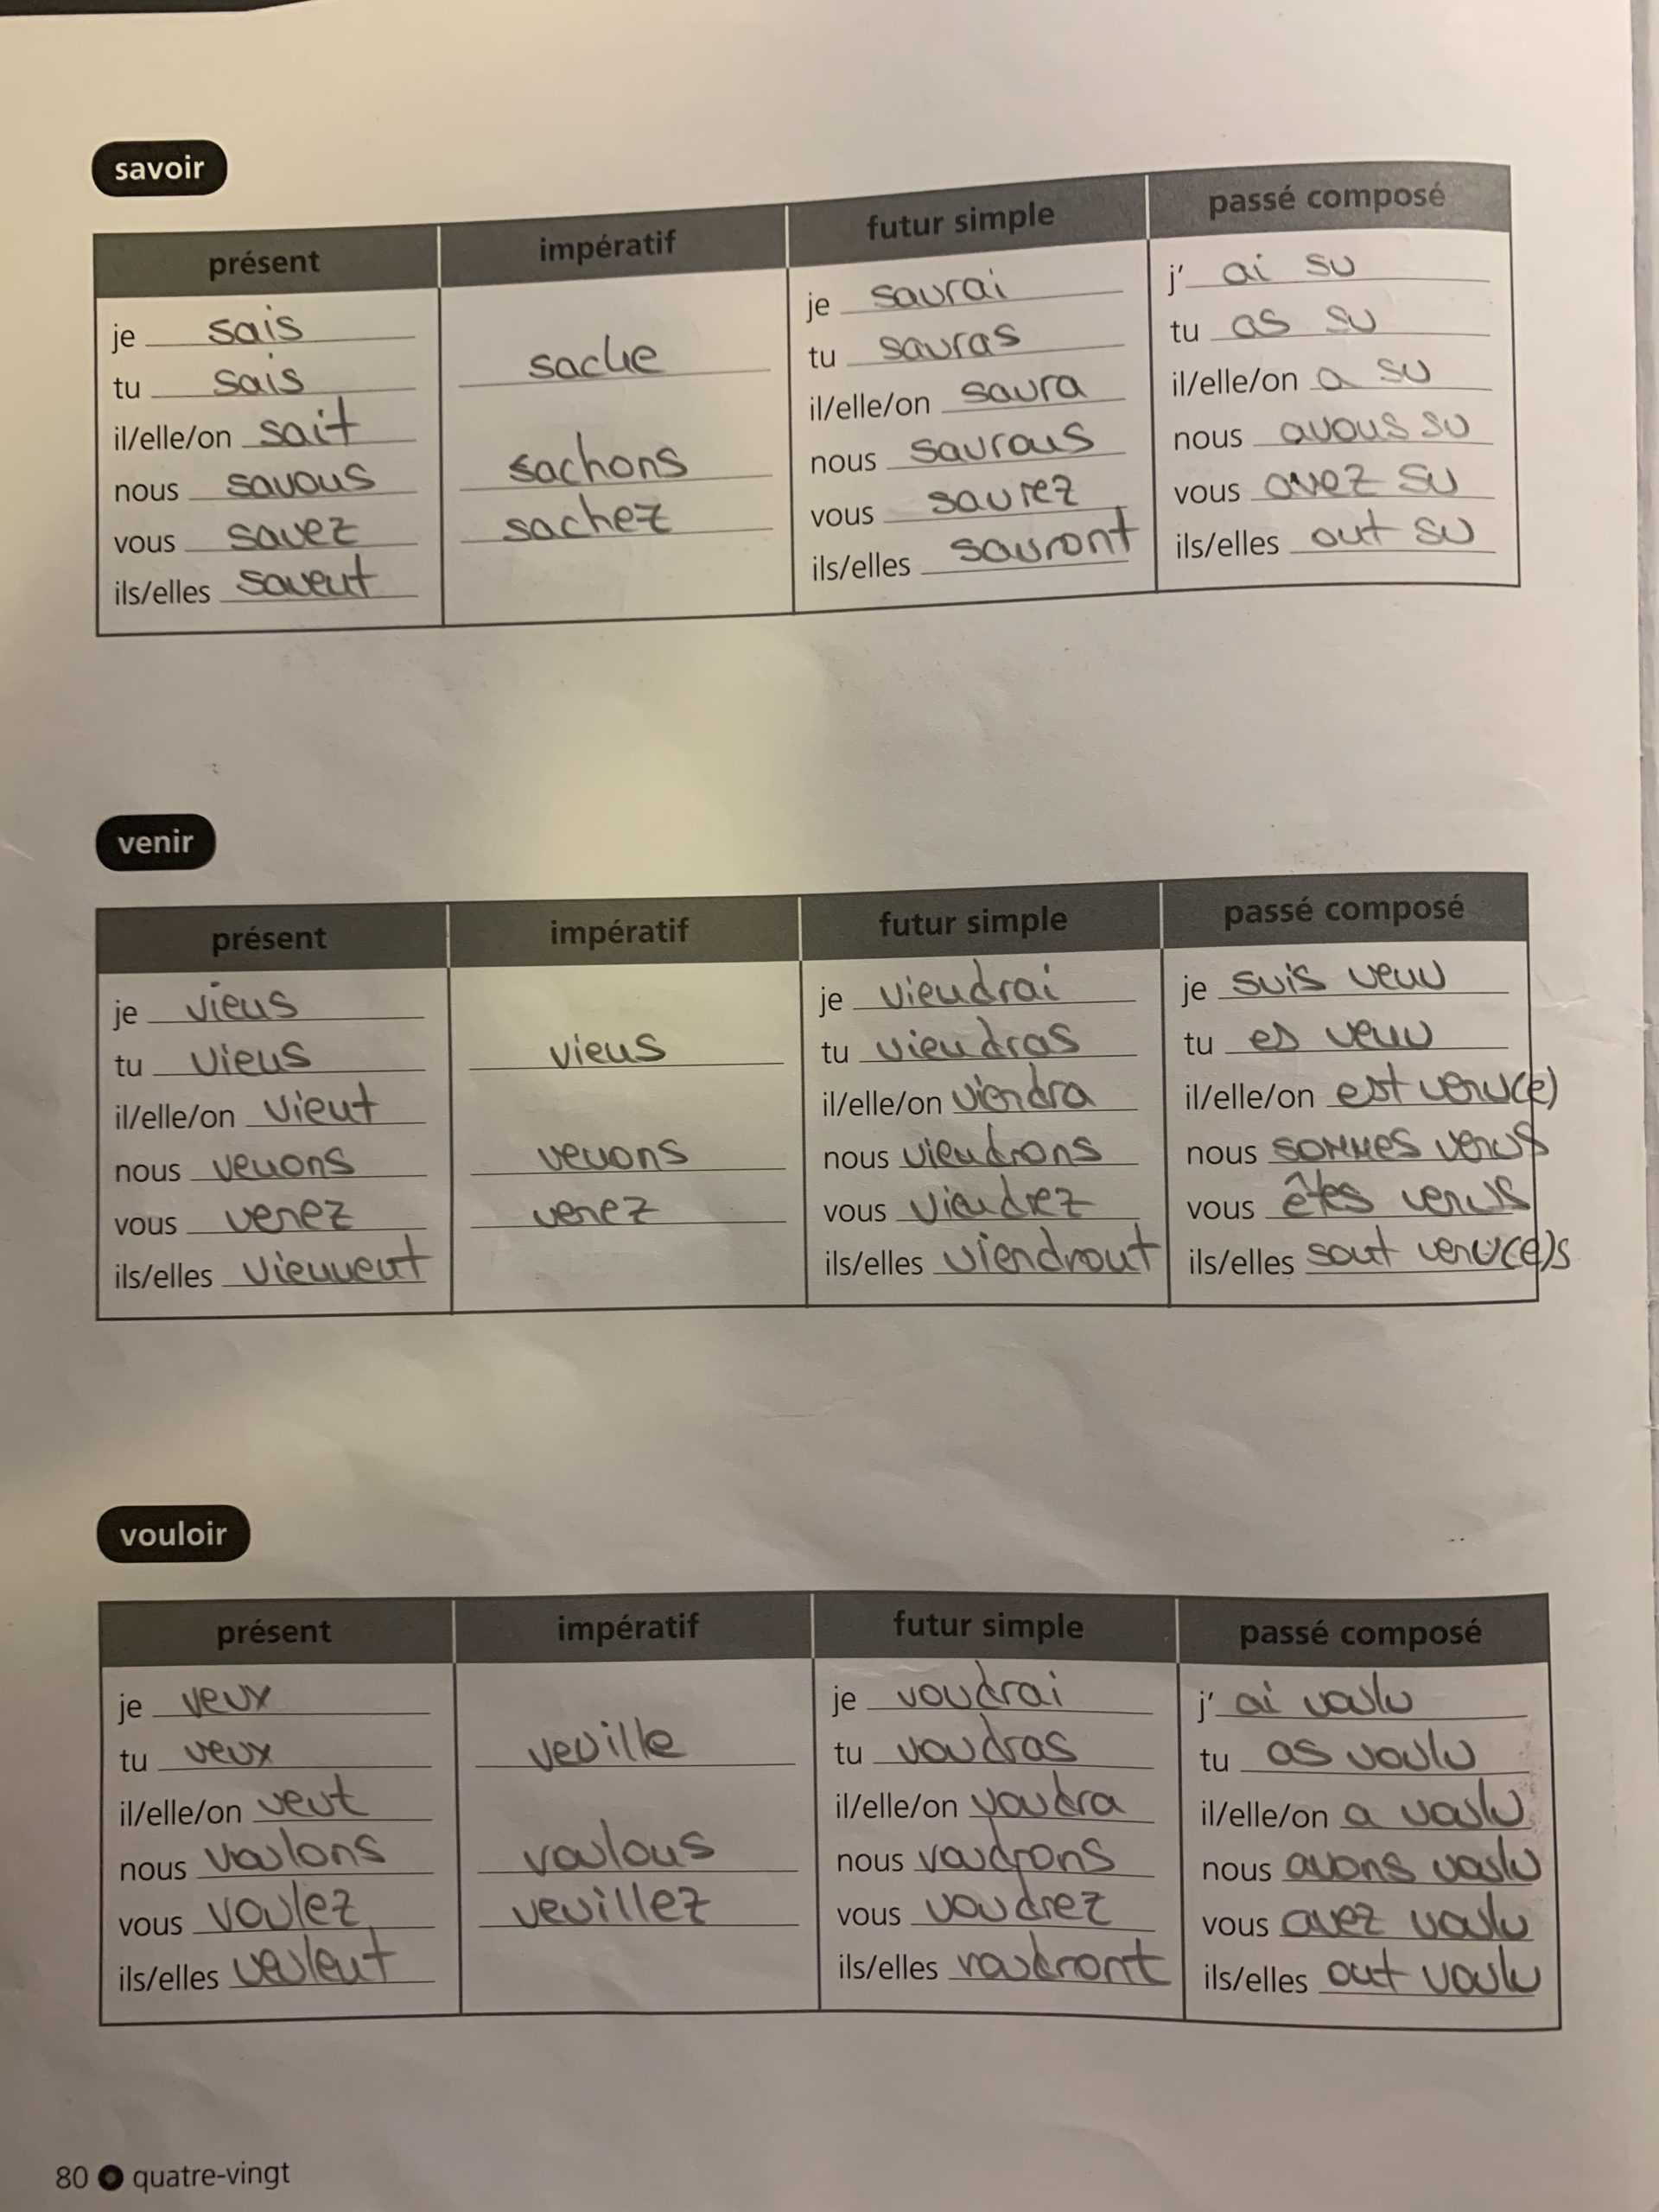 savoir
présent impératif futur simple passé composé
je sais
tu sais
il/elle/on sait
nous savons
vous savez
ils/elles savent
sache
sachons
sachez
je saurai
tu sauras
il/elle/on saura
nous saurons
vous saurez
ils/elles sauront
j' ai su
tu as su
il/elle/on a su
nous avons su
vous avez su
ils/elles ont su
venir
présent impératif futur simple passé composé
je viens
tu viens
il/elle/on vient
nous venons
vous venez
ils/elles viennent
viens
venons
venez
je viendrai
tu viendras
il/elle/on viendra
nous viendrons
vous viendrez
ils/elles viendront
je suis venu
tu es venu
il/elle/on est venu(e)
nous sommes venus
vous êtes venus
ils/elles sont venu(e)s
vouloir
présent impératif futur simple passé composé
je veux
tu veux
il/elle/on veut
nous voulons
vous voulez
ils/elles veulent
veuille
voulons
veuillez
je voudrai
tu voudras
il/elle/on voudra
nous voudrons
vous voudrez
ils/elles voudront
j' ai voulu
tu as voulu
il/elle/on a voulu
nous avons voulu
vous avez voulu
ils/elles ont voulu
80 quatre-vingt